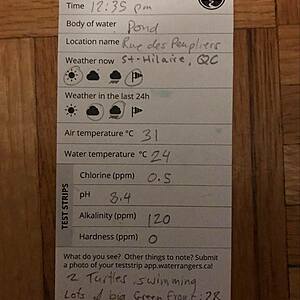 Time 12:35 pm
Body of water Pond
Location name Rue des Peupliers
Weather now St-Hilaire, QC
Weather in the last 24h
Air temperature °C 31
Water temperature °C 24
TEST STRIPS
Chlorine (ppm) 0.5
pH 8.4
Alkalinity (ppm) 120
Hardness (ppm) 0
What do you see? Other things to note? Submit
a photo of your teststrip app.waterrangers.ca!
2 Turtles swimming
Lots of big Green